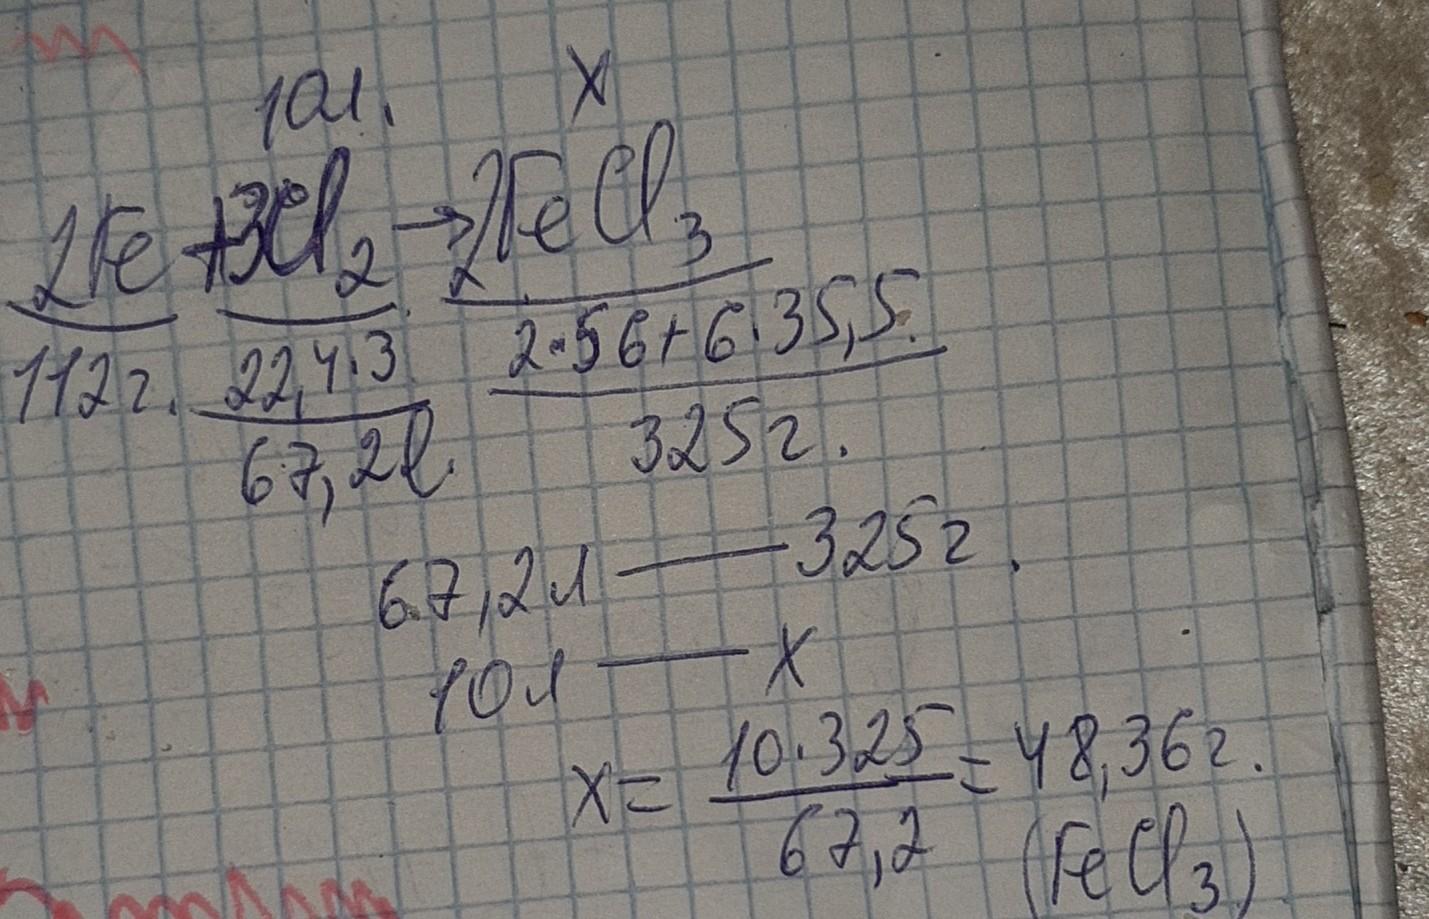 10л. x
2Fe+3Cl₂→2FeCl₃
112г. 22,4·3 2·56+6·35,5.
67,2l. 325г.
67,2л — 325г.
10л — x
x= 10·325 / 67,2 = 48,36г.
(FeCl₃)